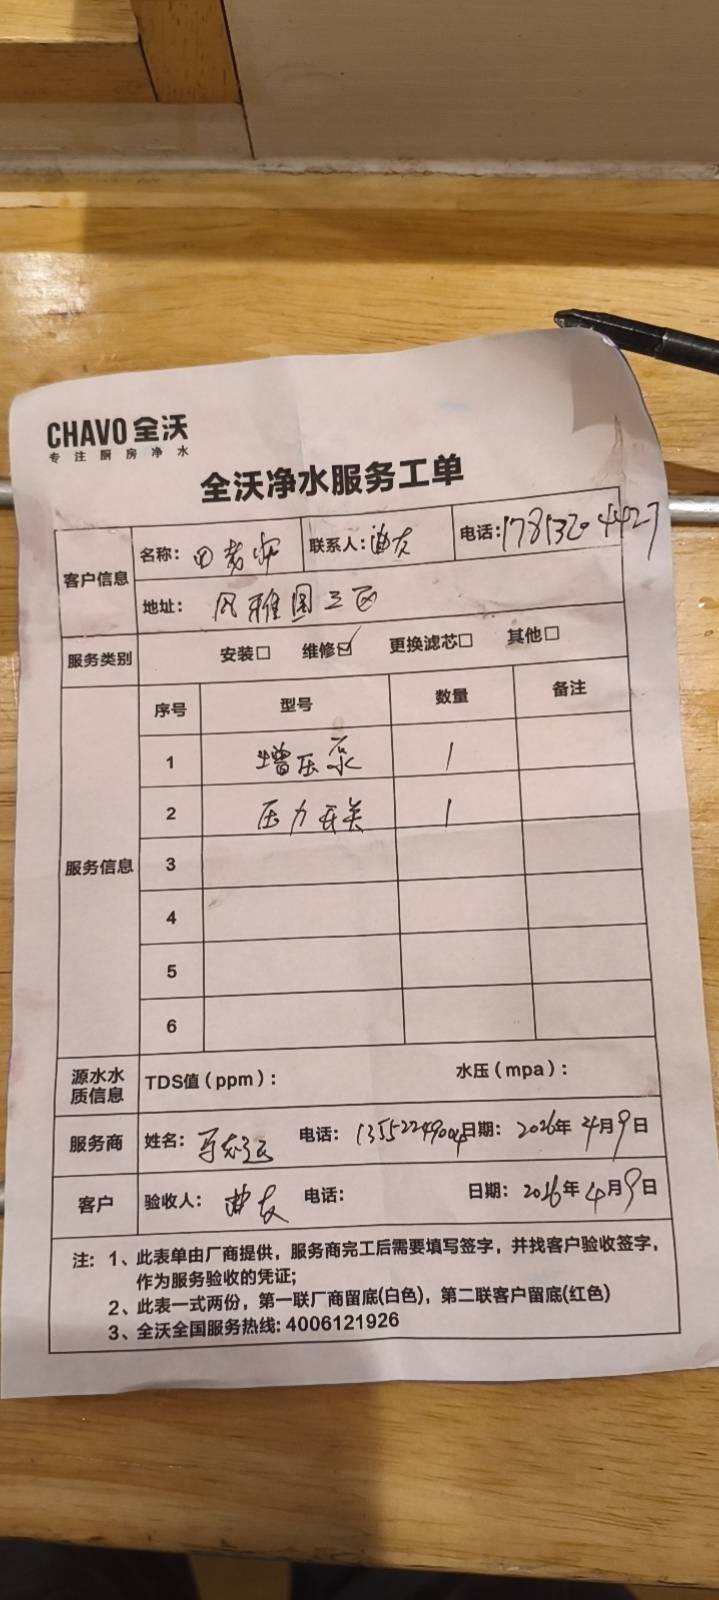 CHAVO 全沃
专注厨房净水
全沃净水服务工单
客户信息 名称: 田老师 联系人: 曲友 电话: 178 1320 4427
地址: 风雅园三区
服务类别 安装□ 维修☑ 更换滤芯□ 其他□
服务信息
序号 型号 数量 备注
1 增压泵 1
2 压力开关 1
3
4
5
6
源水水质信息 TDS值（ppm）: 水压（mpa）:
服务商 姓名: 电话: 13552249004 日期: 2026年4月9日
客户 验收人: 曲友 电话: 日期: 2026年4月9日
注: 1、此表单由厂商提供，服务商完工后需要填写签字，并找客户验收签字，
作为服务验收的凭证;
2、此表一式两份，第一联厂商留底(白色)，第二联客户留底(红色)
3、全沃全国服务热线: 4006121926